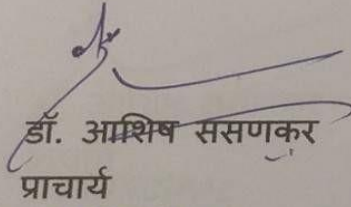 डॉ. आशिष ससणकर
प्राचार्य